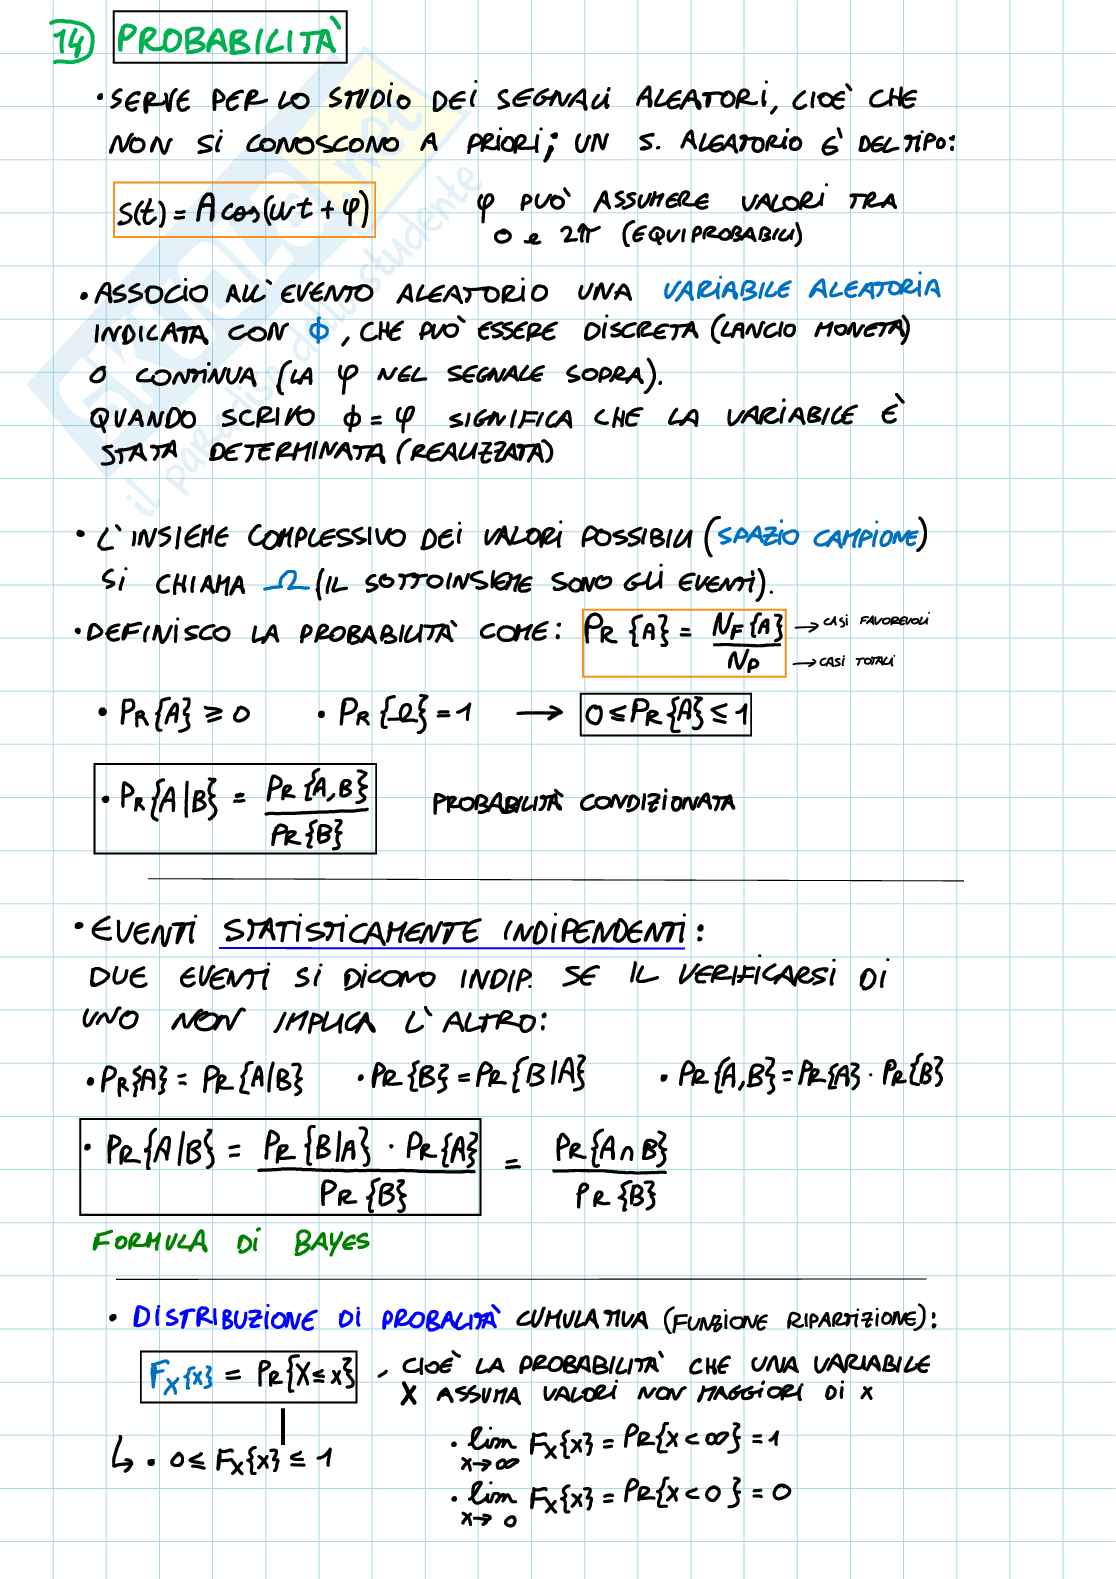 14 PROBABILITÀ
• SERVE PER LO STUDIO DEI SEGNALI ALEATORI, CIOÈ CHE
NON SI CONOSCONO A PRIORI; UN S. ALEATORIO È DEL TIPO:
S(t) = A cos(wt + φ) φ PUÒ ASSUMERE VALORI TRA
0 e 2π (EQUIPROBABILI)
• ASSOCIO ALL'EVENTO ALEATORIO UNA VARIABILE ALEATORIA
INDICATA CON ϕ, CHE PUÒ ESSERE DISCRETA (LANCIO MONETA)
O CONTINUA (LA φ NEL SEGNALE SOPRA).
QUANDO SCRIVO ϕ = φ SIGNIFICA CHE LA VARIABILE È
STATA DETERMINATA (REALIZZATA)
• L'INSIEME COMPLESSIVO DEI VALORI POSSIBILI (SPAZIO CAMPIONE)
SI CHIAMA Ω (IL SOTTOINSIEME SONO GLI EVENTI).
• DEFINISCO LA PROBABILITÀ COME: PR {A} = NF{A} / NP → CASI FAVOREVOLI
→ CASI TOTALI
• PR{A} ≥ 0 • PR{Ω} = 1 → 0 ≤ PR{A} ≤ 1
• PR{A|B} = PR{A,B} / PR{B} PROBABILITÀ CONDIZIONATA
• EVENTI STATISTICAMENTE INDIPENDENTI:
DUE EVENTI SI DICONO INDIP. SE IL VERIFICARSI DI
UNO NON IMPLICA L'ALTRO:
• PR{A} = PR{A|B} • PR{B} = PR{B|A} • PR{A,B} = PR{A} · PR{B}
• PR{A|B} = PR{B|A} · PR{A} / PR{B} = PR{A∩B} / PR{B}
FORMULA DI BAYES
• DISTRIBUZIONE DI PROBALITÀ CUMULATIVA (FUNZIONE RIPARTIZIONE):
FX{x} = PR{X ≤ x} , CIOÈ LA PROBABILITÀ CHE UNA VARIABILE
X ASSUMA VALORI NON MAGGIORI DI x
↳ • 0 ≤ FX{x} ≤ 1
• lim x→∞ FX{x} = PR{x < ∞} = 1
• lim x→0 FX{x} = PR{x < 0} = 0
skuola.net
il paradiso dello studente